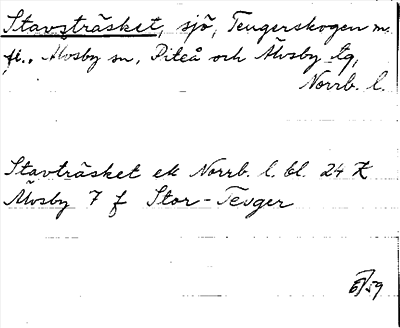 Stavsträsket, sjö, Teugerskogen m.
fl., Älvsby sn, Piteå och Älvsby tg,
Norrb. l.
Stavträsket ek Norrb. l. bl. 24
Älvsby 7 f Stor-Teuger
59